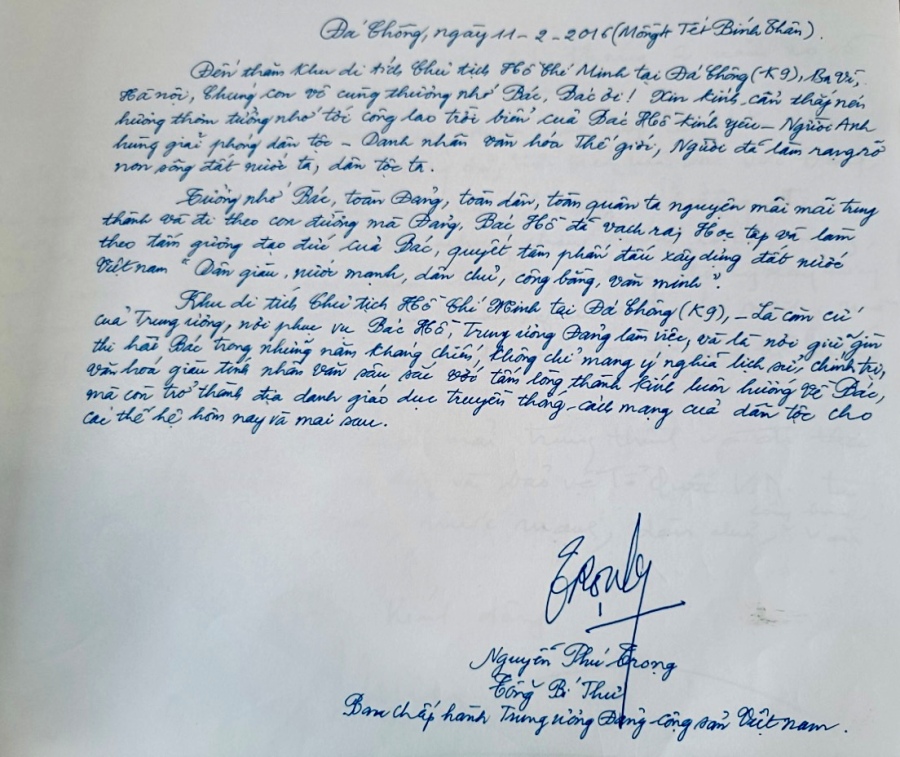 Đá Chông, ngày 11-2-2016 (Mồng 4 Tết Bính Thân).
Đến thăm Khu di tích Chủ tịch Hồ Chí Minh tại Đá Chông (K9), Ba Vì,
Hà nội, Chúng con vô cùng thương nhớ Bác, Bác ơi! Xin kính cẩn thắp nén
hương thơm tưởng nhớ tới công lao trời biển của Bác Hồ kính yêu - Người Anh
hùng giải phóng dân tộc - Danh nhân văn hóa Thế giới, Người đã làm rạng rỡ
non sông đất nước ta, dân tộc ta.
Tưởng nhớ Bác, toàn Đảng, toàn dân, toàn quân ta nguyện mãi mãi trung
thành và đi theo con đường mà Đảng, Bác Hồ đã vạch ra; Học tập và làm
theo tấm gương đạo đức của Bác, quyết tâm phấn đấu xây dựng đất nước
Việt nam "Dân giàu, nước mạnh, dân chủ, công bằng, văn minh".
Khu di tích Chủ tịch Hồ Chí Minh tại Đá Chông (K9), - Là căn cứ
của Trung ương, nơi phục vụ Bác Hồ, Trung ương Đảng làm việc, và là nơi giữ gìn
thi hài Bác trong những năm kháng chiến, không chỉ mang ý nghĩa lịch sử, chính trị,
văn hoá giàu tính nhân văn sâu sắc với tấm lòng thành kính luôn hướng về Bác,
mà còn trở thành địa danh giáo dục truyền thống cách mạng của dân tộc cho
các thế hệ hôm nay và mai sau.
Trọng
Nguyễn Phú Trọng
Tổng Bí Thư
Ban chấp hành Trung ương Đảng cộng sản Việt nam.